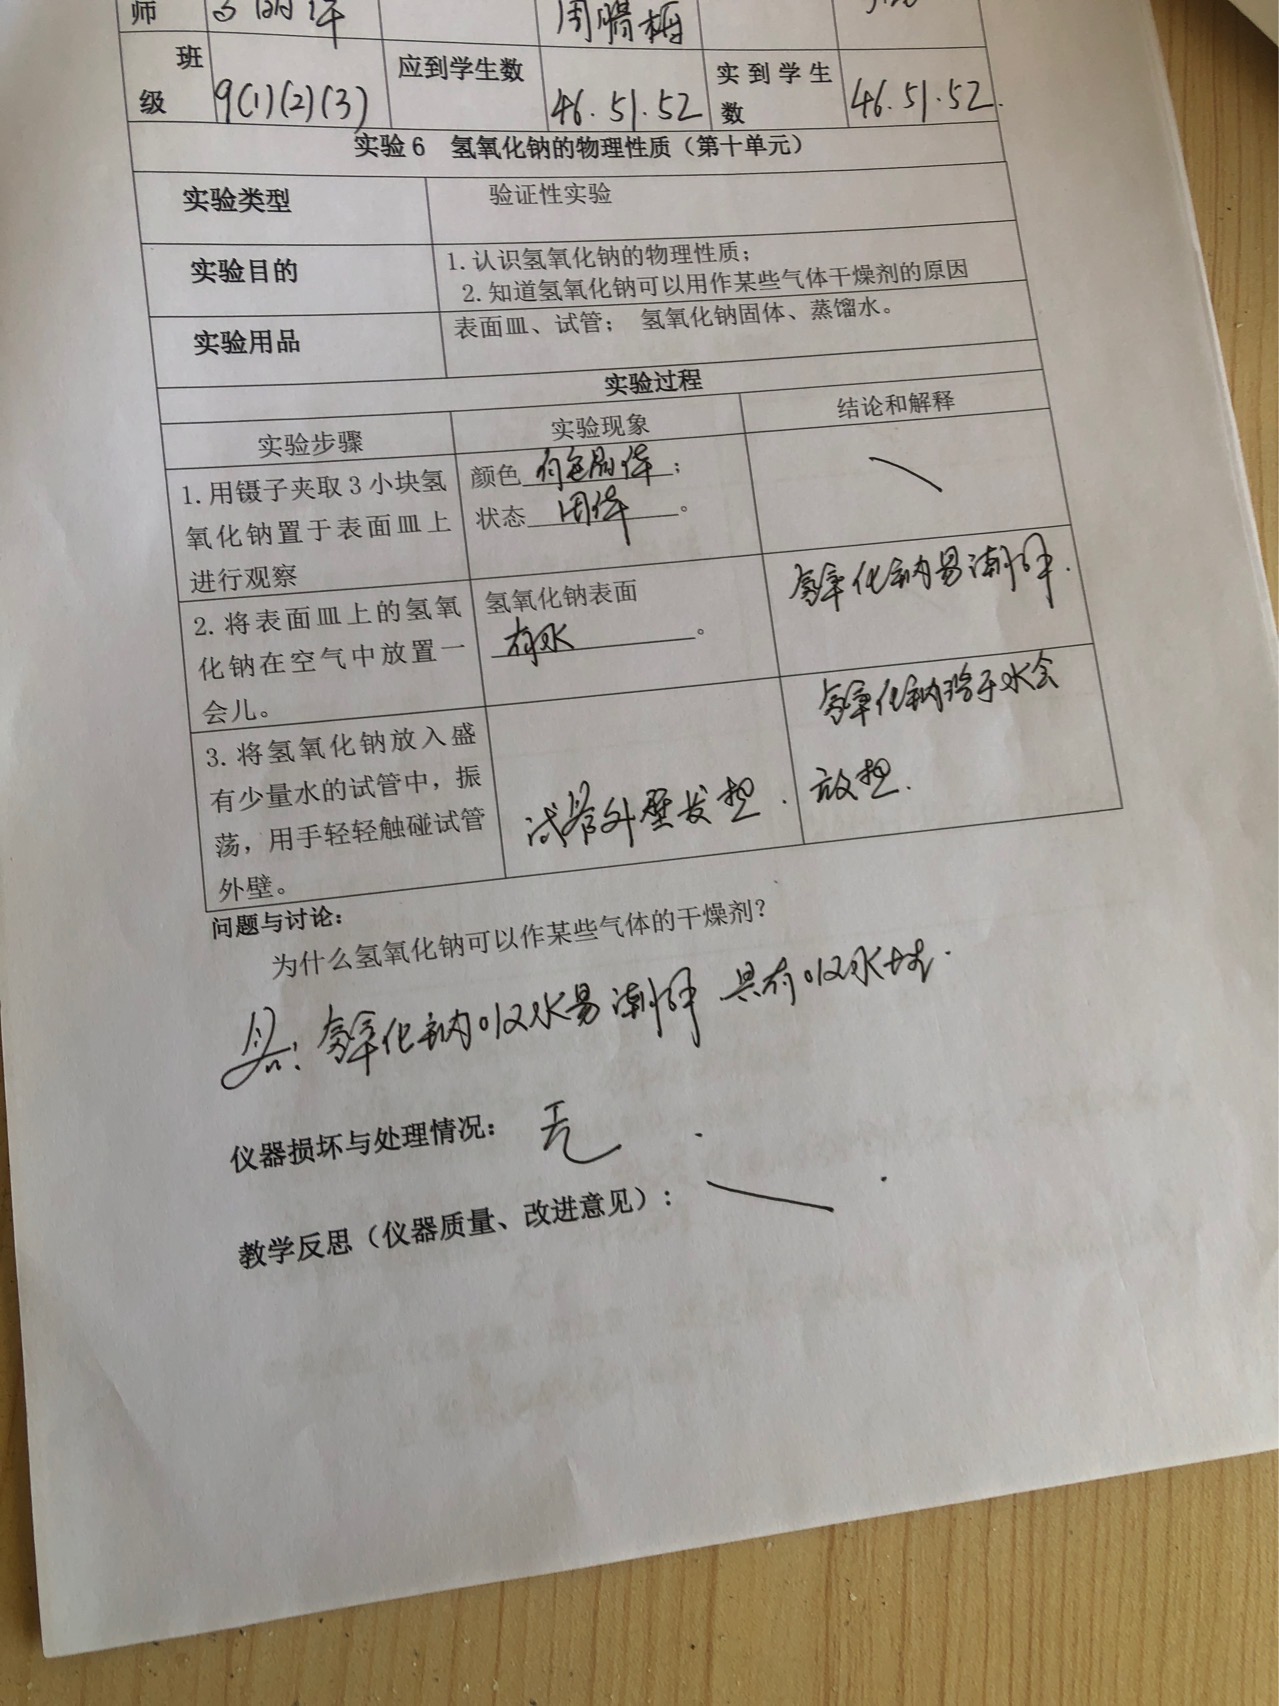 师
周腊梅
班级 9(1)(2)(3) 应到学生数 46.51.52 实到学生数 46.51.52.
实验6 氢氧化钠的物理性质（第十单元）
实验类型 验证性实验
实验目的 1.认识氢氧化钠的物理性质；
2.知道氢氧化钠可以用作某些气体干燥剂的原因
实验用品 表面皿、试管； 氢氧化钠固体、蒸馏水。
实验过程
实验步骤 实验现象 结论和解释
1.用镊子夹取3小块氢
氧化钠置于表面皿上
进行观察
颜色 白色固体；
状态 固体。
2.将表面皿上的氢氧
化钠在空气中放置一
会儿。
氢氧化钠表面
有水。
氢氧化钠易潮解.
3.将氢氧化钠放入盛
有少量水的试管中，振
荡，用手轻轻触碰试管
外壁。
试管外壁发热.
氢氧化钠溶于水会
放热.
问题与讨论：
为什么氢氧化钠可以作某些气体的干燥剂？
答：氢氧化钠吸水易潮解 具有吸水性.
仪器损坏与处理情况： 无
教学反思（仪器质量、改进意见）：